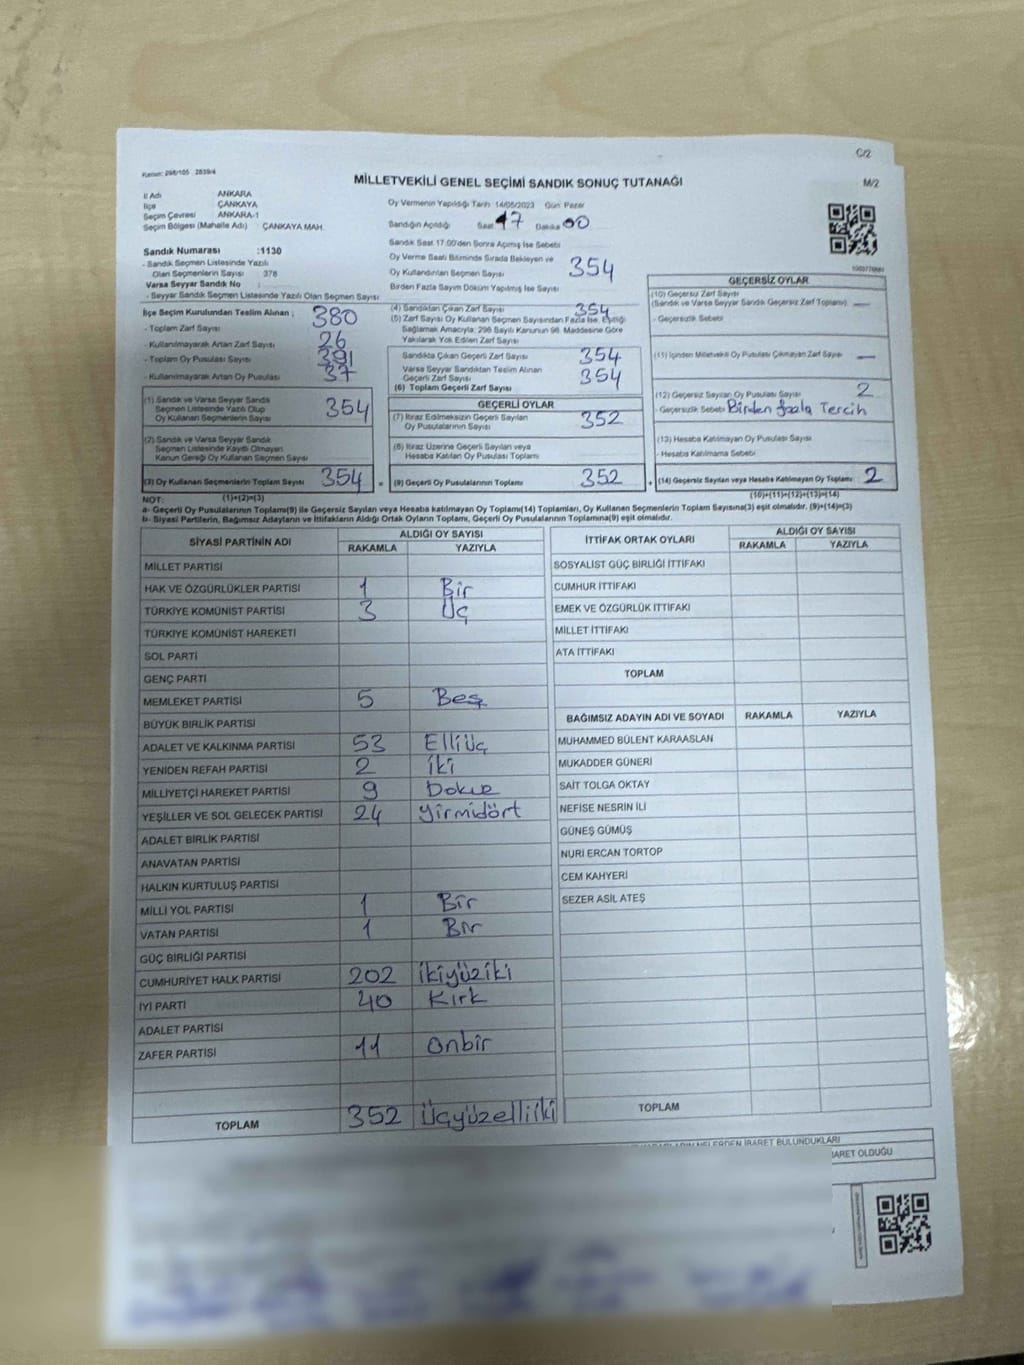 C/2
Kanun: 298/105 2839/4
MİLLETVEKİLİ GENEL SEÇİMİ SANDIK SONUÇ TUTANAĞI
M/2
İl Adı ANKARA
İlçe ÇANKAYA
Seçim Çevresi ANKARA-1
Seçim Bölgesi (Mahalle Adı) ÇANKAYA MAH.
Oy Vermenin Yapıldığı Tarih 14/05/2023 Gün: Pazar
Sandığın Açıldığı Saat 17 Dakika 00
Sandık Saat 17:00'den Sonra Açılmış İse Sebebi
Oy Verme Saati Bitiminde Sırada Bekleyen ve
Oy Kullandırılan Seçmen Sayısı 354
Birden Fazla Sayım Döküm Yapılmış İse Sayısı
Sandık Numarası :1130
- Sandık Seçmen Listesinde Yazılı
Olan Seçmenlerin Sayısı : 378
Varsa Seyyar Sandık No :
- Seyyar Sandık Seçmen Listesinde Yazılı Olan Seçmen Sayısı
İlçe Seçim Kurulundan Teslim Alınan ;
- Toplam Zarf Sayısı 380
- Kullanılmayarak Artan Zarf Sayısı 26
- Toplam Oy Pusulası Sayısı 391
- Kullanılmayarak Artan Oy Pusulası 37
(1) Sandık ve Varsa Seyyar Sandık
Seçmen Listesinde Yazılı Olup
Oy Kullanan Seçmenlerin Sayısı 354
(2) Sandık ve Varsa Seyyar Sandık
Seçmen Listesinde Kayıtlı Olmayan
Kanun Gereği Oy Kullanan Seçmen Sayısı
(3) Oy Kullanan Seçmenlerin Toplam Sayısı 354 =
(4) Sandıktan Çıkan Zarf Sayısı 354
(5) Zarf Sayısı Oy Kullanan Seçmen Sayısından Fazla İse, Eşitliği
Sağlamak Amacıyla; 298 Sayılı Kanunun 98. Maddesine Göre
Yakılarak Yok Edilen Zarf Sayısı
Sandıkta Çıkan Geçerli Zarf Sayısı 354
Varsa Seyyar Sandıktan Teslim Alınan
Geçerli Zarf Sayısı
(6) Toplam Geçerli Zarf Sayısı 354
GEÇERLİ OYLAR
(7) İtiraz Edilmeksizin Geçerli Sayılan
Oy Pusulalarının Sayısı 352
(8) İtiraz Üzerine Geçerli Sayılan veya
Hesaba Katılan Oy Pusulası Toplamı
(9) Geçerli Oy Pusulalarının Toplamı 352 +
GEÇERSİZ OYLAR
(10) Geçersiz Zarf Sayısı
(Sandık ve Varsa Seyyar Sandık Geçersiz Zarf Toplamı) —
- Geçersizlik Sebebi
(11) İçinden Milletvekili Oy Pusulası Çıkmayan Zarf Sayısı —
(12) Geçersiz Sayılan Oy Pusulası Sayısı 2
- Geçersizlik Sebebi Birden fazla Tercih
(13) Hesaba Katılmayan Oy Pusulası Sayısı
- Hesaba Katılmama Sebebi
(14) Geçersiz Sayılan veya Hesaba Katılmayan Oy Toplamı 2
NOT: (1)+(2)=(3) (10)+(11)+(12)+(13)=(14)
a- Geçerli Oy Pusulalarının Toplamı(9) ile Geçersiz Sayılan veya Hesaba katılmayan Oy Toplamı(14) Toplamları, Oy Kullanan Seçmenlerin Toplam Sayısına(3) eşit olmalıdır. (9)+(14)=(3)
b- Siyasi Partilerin, Bağımsız Adayların ve İttifakların Aldığı Ortak Oyların Toplamı, Geçerli Oy Pusulalarının Toplamına(9) eşit olmalıdır.
SİYASİ PARTİNİN ADI ALDIĞI OY SAYISI
RAKAMLA YAZIYLA
MİLLET PARTİSİ
HAK VE ÖZGÜRLÜKLER PARTİSİ 1 Bir
TÜRKİYE KOMÜNİST PARTİSİ 3 Üç
TÜRKİYE KOMÜNİST HAREKETİ
SOL PARTİ
GENÇ PARTİ
MEMLEKET PARTİSİ 5 Beş
BÜYÜK BİRLİK PARTİSİ
ADALET VE KALKINMA PARTİSİ 53 Elliüç
YENİDEN REFAH PARTİSİ 2 iki
MİLLİYETÇİ HAREKET PARTİSİ 9 Dokuz
YEŞİLLER VE SOL GELECEK PARTİSİ 24 yirmidört
ADALET BİRLİK PARTİSİ
ANAVATAN PARTİSİ
HALKIN KURTULUŞ PARTİSİ
MİLLİ YOL PARTİSİ 1 Bir
VATAN PARTİSİ 1 Bir
GÜÇ BİRLİĞİ PARTİSİ
CUMHURİYET HALK PARTİSİ 202 ikiyüziki
İYİ PARTİ 40 Kırk
ADALET PARTİSİ
ZAFER PARTİSİ 11 Onbir
TOPLAM 352 Üçyüzelliiki
İTTİFAK ORTAK OYLARI ALDIĞI OY SAYISI
RAKAMLA YAZIYLA
SOSYALİST GÜÇ BİRLİĞİ İTTİFAKI
CUMHUR İTTİFAKI
EMEK VE ÖZGÜRLÜK İTTİFAKI
MİLLET İTTİFAKI
ATA İTTİFAKI
TOPLAM
BAĞIMSIZ ADAYIN ADI VE SOYADI RAKAMLA YAZIYLA
MUHAMMED BÜLENT KARAASLAN
MUKADDER GÜNERİ
SAİT TOLGA OKTAY
NEFİSE NESRİN İLİ
GÜNEŞ GÜMÜŞ
NURİ ERCAN TORTOP
CEM KAHYERİ
SEZER ASİL ATEŞ
TOPLAM
NELERDEN İBARET BULUNDUKLARI
İBARET OLDUĞU